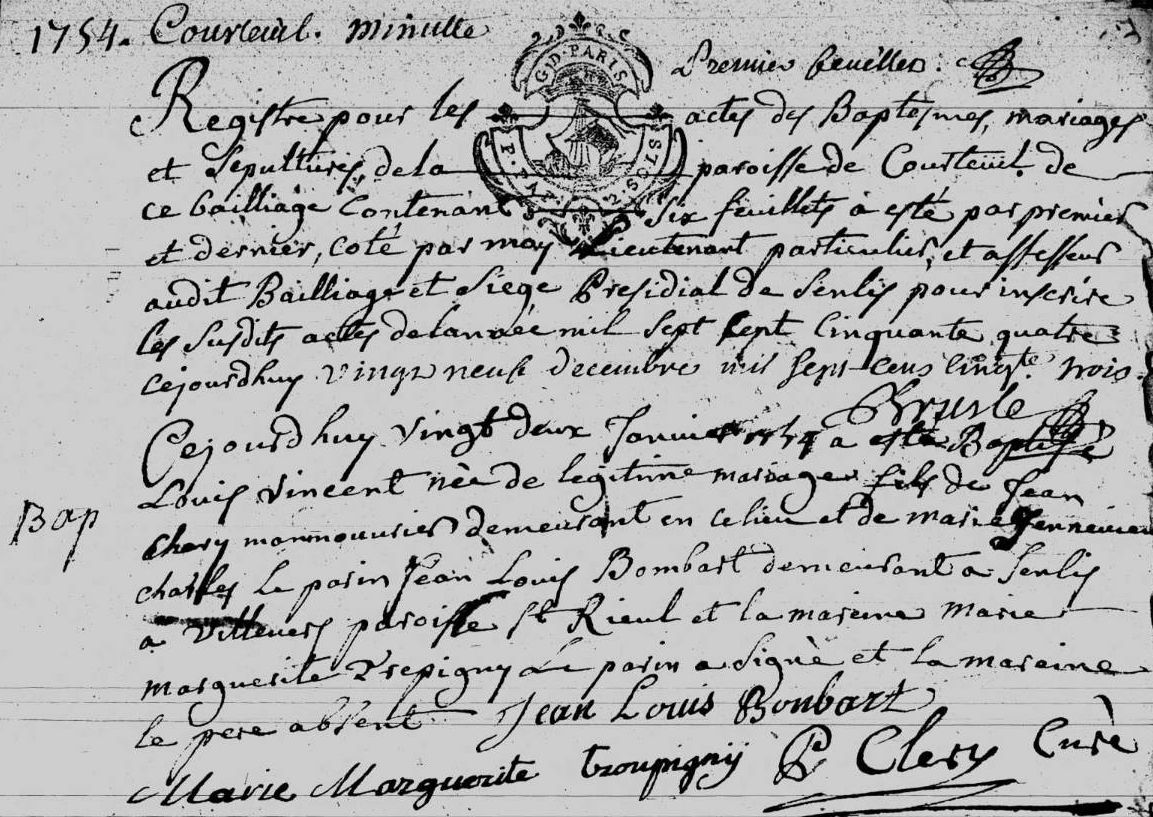 1754. Courteuil. Minutte
Premier feuillet.
GD. PARIS
Registre pour les actes des Baptesmes, mariages
et Sepultures de la paroisse de Courteuil de
ce bailliage Contenant Six feuillets a esté par premier
et dernier, coté par moy Lieutenant particulier, et assesseur
audit Bailliage et Siege Presidial de Senlis pour inscrire
les susdits actes de lannée mil sept sept Cinquante quatre
cejourdhuy vingt neuf decembre mil sept cens cinqte. trois.
Bruslé
Cejourdhuy vingt deux Janvier 1754 a esté Baptisé
Louis Vincent née de legitime mariage fils de Jean
Bap
Chery mannouvrier demeurant en ce lieu et de marie Jenneuieu
charles Le parin Jean Louis Bombart demeurant a Senlis
a Villevers paroisse St Rieul et la mareine Marie
marguerite Trepigny Le parin a Signè et la maraine
le pere absent Jean Louis Bonbart
Marie Marguerite troupignÿ P Clery Curè